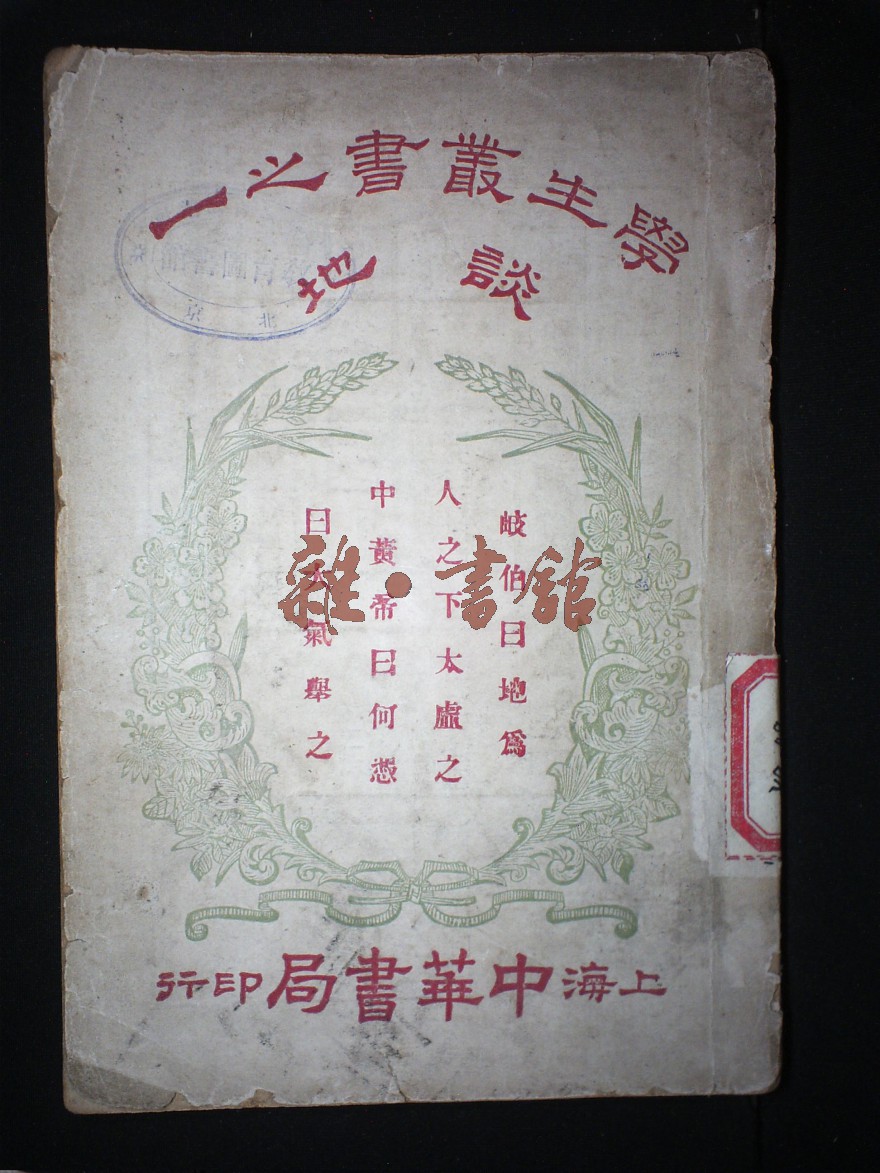 學生叢書之一
談地
岐伯曰地爲
人之下太虛之
中黃帝曰何憑
曰大氣舉之
上海中華書局印行
雜·書館
北京